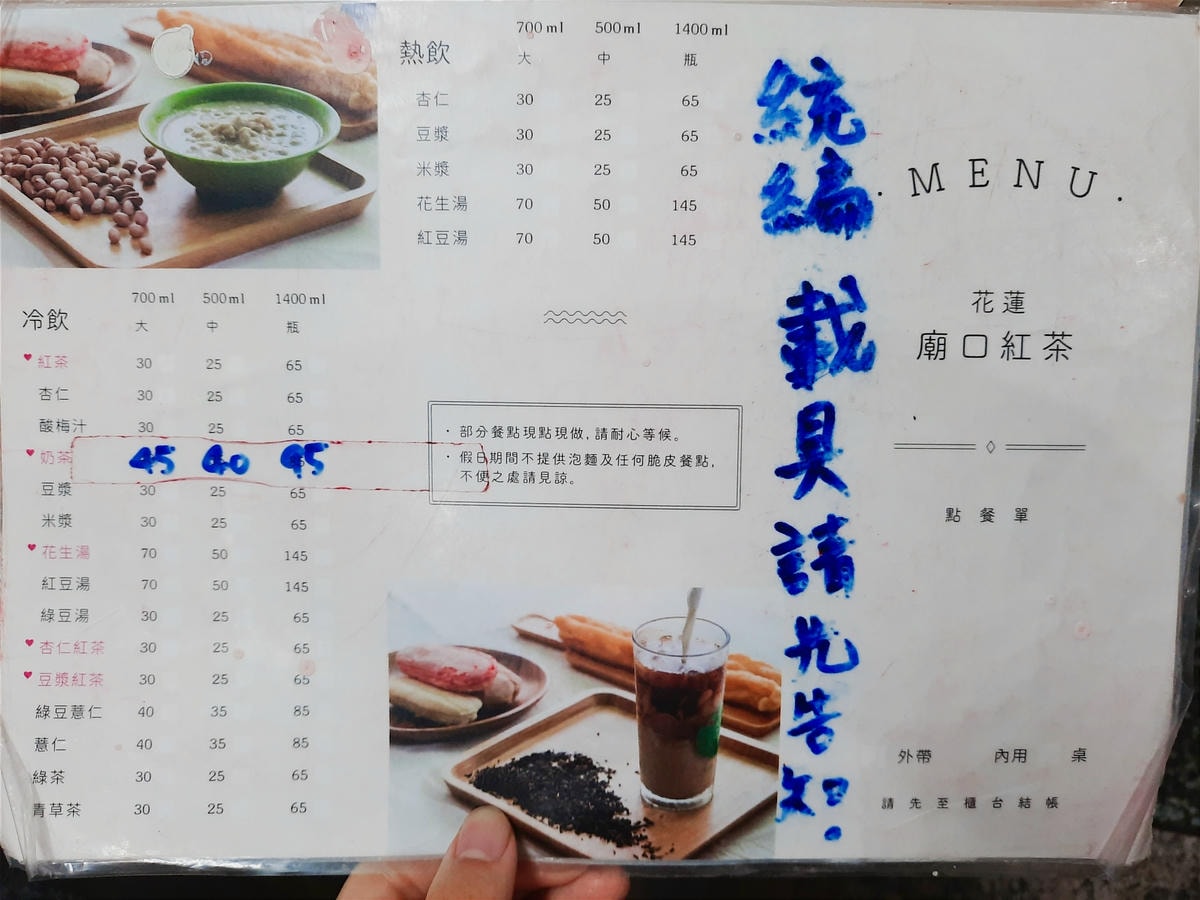 熱飲
700ml 500ml 1400ml
大 中 瓶
杏仁 30 25 65
豆漿 30 25 65
米漿 30 25 65
花生湯 70 50 145
紅豆湯 70 50 145
冷飲
700ml 500ml 1400ml
大 中 瓶
紅茶 30 25 65
杏仁 30 25 65
酸梅汁 30 25 65
奶茶 45 40 95
豆漿 30 25 65
米漿 30 25 65
花生湯 70 50 145
紅豆湯 70 50 145
綠豆湯 30 25 65
杏仁紅茶 30 25 65
豆漿紅茶 30 25 65
綠豆薏仁 40 35 85
薏仁 40 35 85
綠茶 30 25 65
青草茶 30 25 65
· 部分餐點現點現做,請耐心等候。
· 假日期間不提供泡麵及任何脆皮餐點,
不便之處請見諒。
統編 載具請先告知.
. MENU .
花蓮
廟口紅茶
點餐單
外帶 內用 桌
請先至櫃台結帳